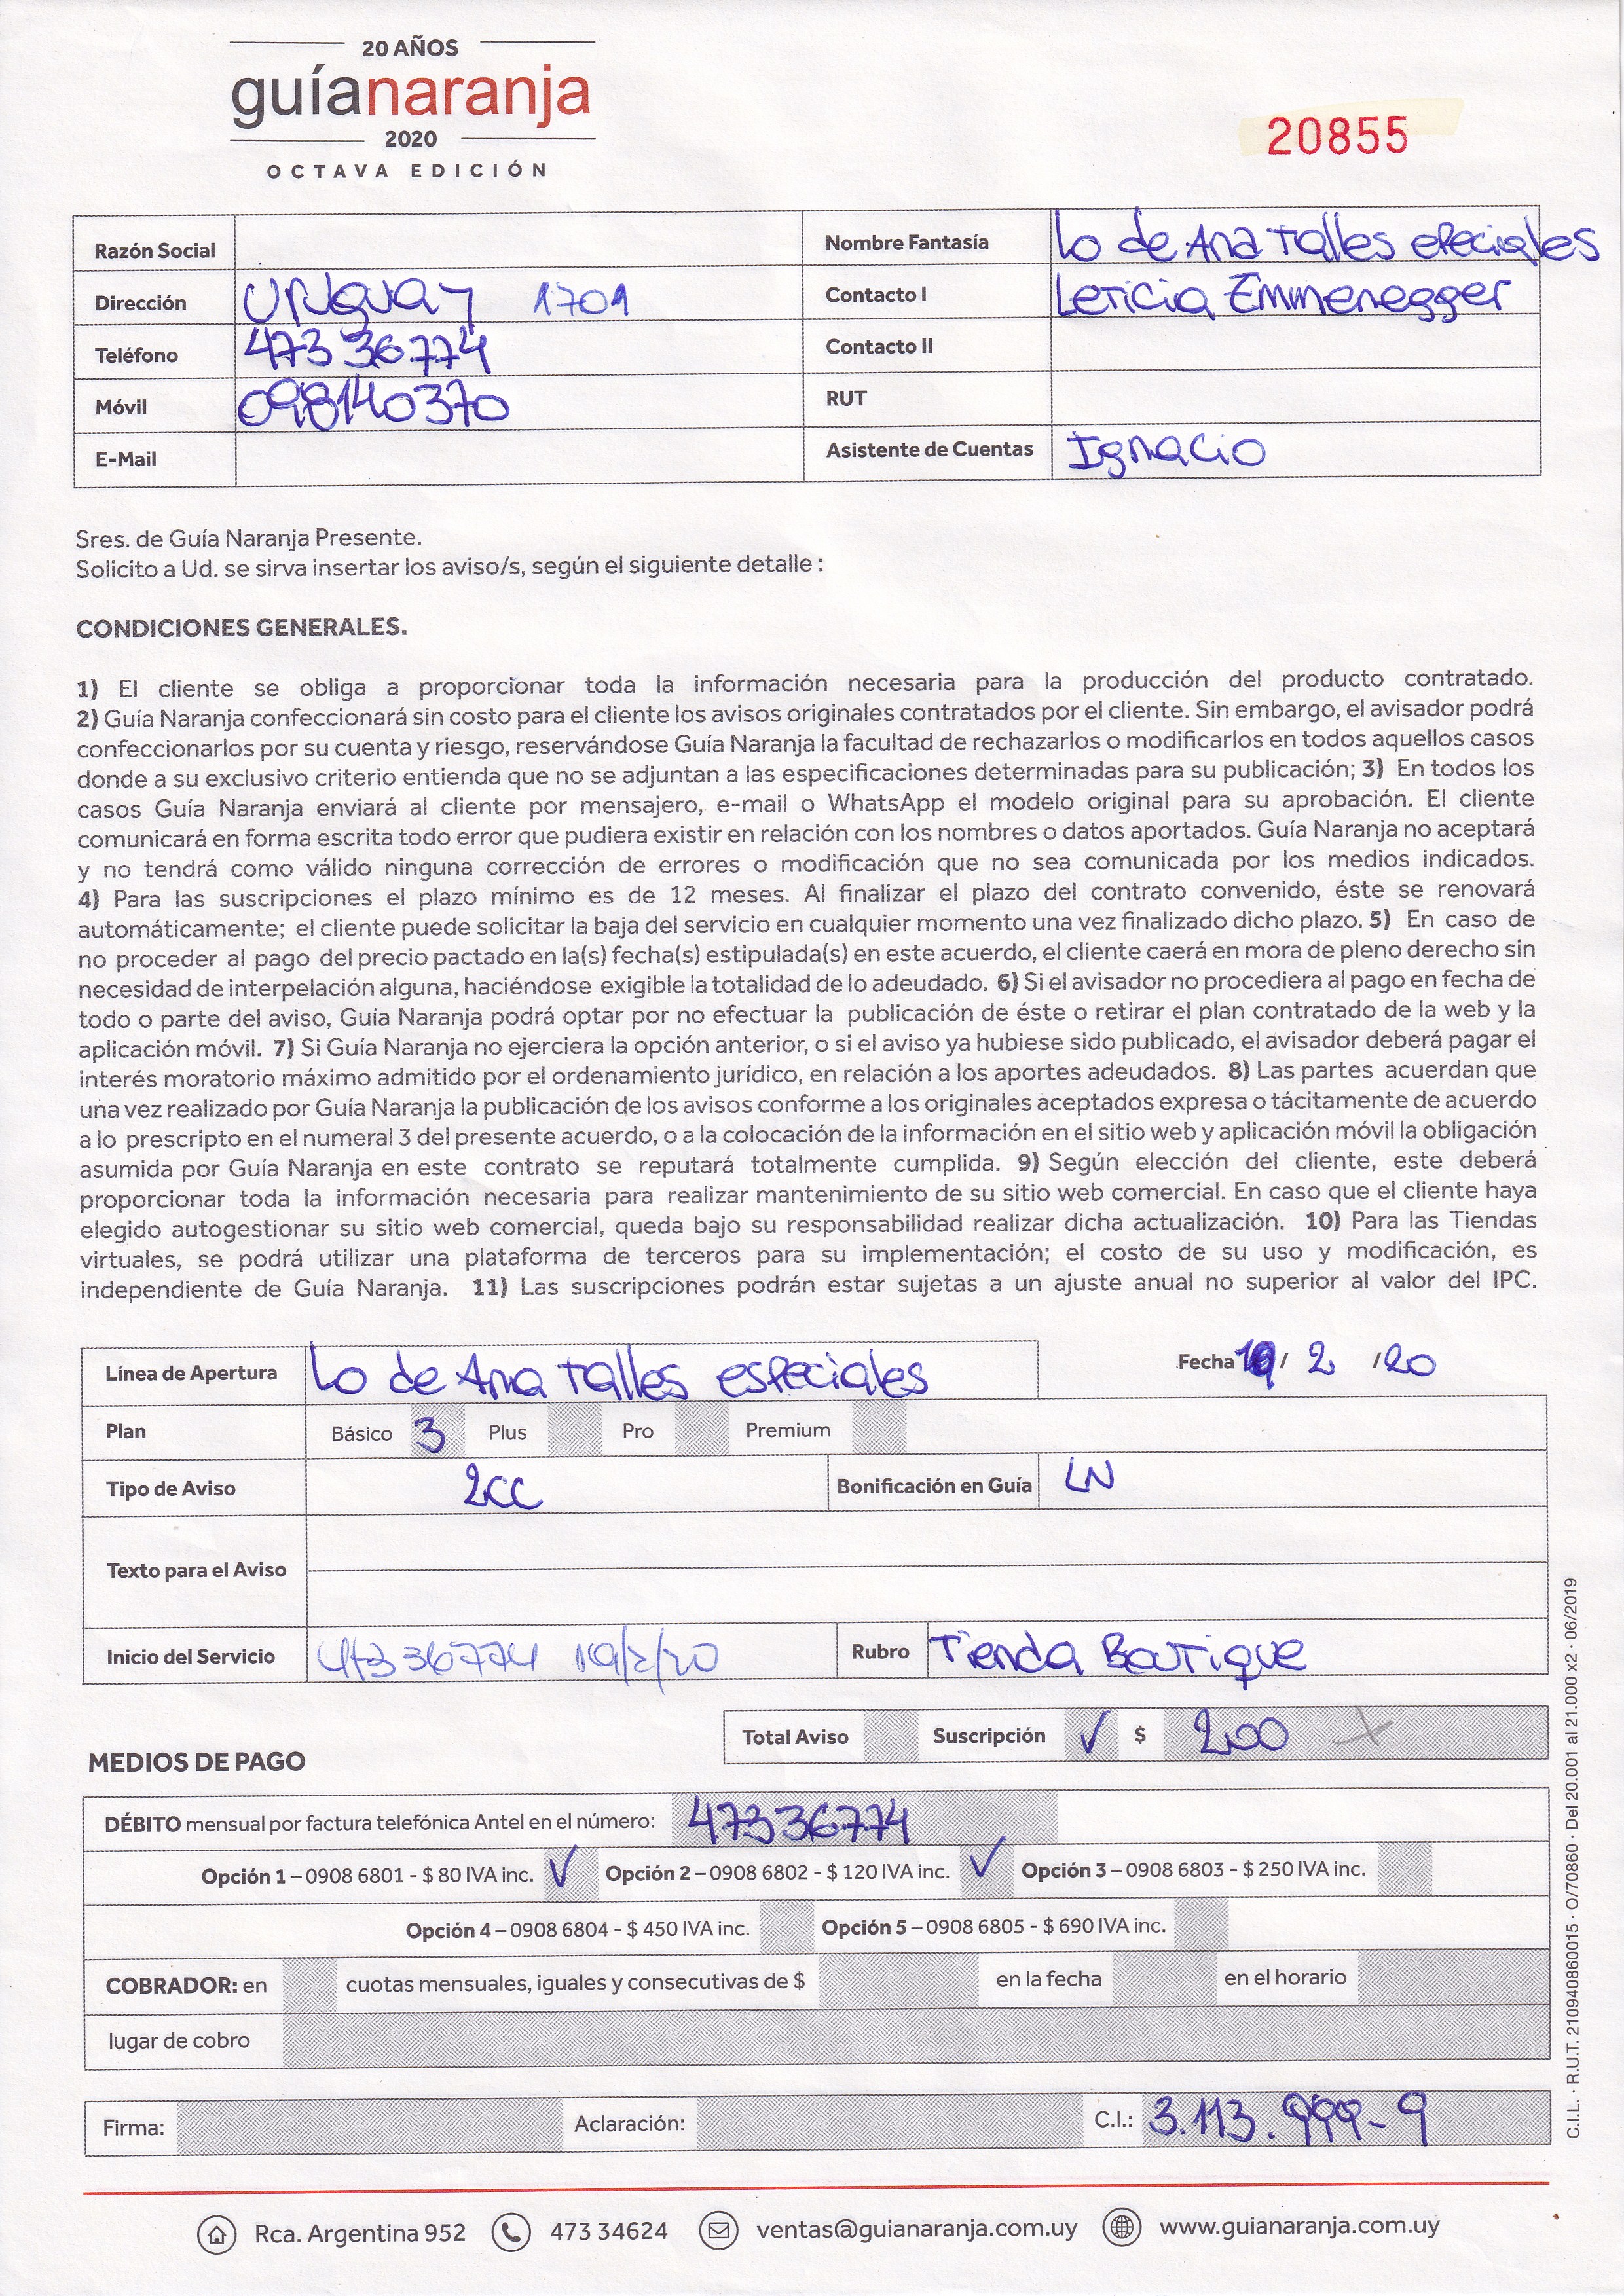 20 AÑOS
guíanaranja
2020
OCTAVA EDICIÓN
20855
Razón Social
Nombre Fantasía Lo de Ana Talles epeciales
Dirección Uruguay 1709
Contacto I Leticia Emmenegger
Teléfono 473 36774
Contacto II
Móvil 098140370
RUT
E-Mail
Asistente de Cuentas Ignacio
Sres. de Guía Naranja Presente.
Solicito a Ud. se sirva insertar los aviso/s, según el siguiente detalle :
CONDICIONES GENERALES.
1) El cliente se obliga a proporcionar toda la información necesaria para la producción del producto contratado.
2) Guía Naranja confeccionará sin costo para el cliente los avisos originales contratados por el cliente. Sin embargo, el avisador podrá
confeccionarlos por su cuenta y riesgo, reservándose Guía Naranja la facultad de rechazarlos o modificarlos en todos aquellos casos
donde a su exclusivo criterio entienda que no se adjuntan a las especificaciones determinadas para su publicación; 3) En todos los
casos Guía Naranja enviará al cliente por mensajero, e-mail o WhatsApp el modelo original para su aprobación. El cliente
comunicará en forma escrita todo error que pudiera existir en relación con los nombres o datos aportados. Guía Naranja no aceptará
y no tendrá como válido ninguna corrección de errores o modificación que no sea comunicada por los medios indicados.
4) Para las suscripciones el plazo mínimo es de 12 meses. Al finalizar el plazo del contrato convenido, éste se renovará
automáticamente; el cliente puede solicitar la baja del servicio en cualquier momento una vez finalizado dicho plazo. 5) En caso de
no proceder al pago del precio pactado en la(s) fecha(s) estipulada(s) en este acuerdo, el cliente caerá en mora de pleno derecho sin
necesidad de interpelación alguna, haciéndose exigible la totalidad de lo adeudado. 6) Si el avisador no procediera al pago en fecha de
todo o parte del aviso, Guía Naranja podrá optar por no efectuar la publicación de éste o retirar el plan contratado de la web y la
aplicación móvil. 7) Si Guía Naranja no ejerciera la opción anterior, o si el aviso ya hubiese sido publicado, el avisador deberá pagar el
interés moratorio máximo admitido por el ordenamiento jurídico, en relación a los aportes adeudados. 8) Las partes acuerdan que
una vez realizado por Guía Naranja la publicación de los avisos conforme a los originales aceptados expresa o tácitamente de acuerdo
a lo prescripto en el numeral 3 del presente acuerdo, o a la colocación de la información en el sitio web y aplicación móvil la obligación
asumida por Guía Naranja en este contrato se reputará totalmente cumplida. 9) Según elección del cliente, este deberá
proporcionar toda la información necesaria para realizar mantenimiento de su sitio web comercial. En caso que el cliente haya
elegido autogestionar su sitio web comercial, queda bajo su responsabilidad realizar dicha actualización. 10) Para las Tiendas
virtuales, se podrá utilizar una plataforma de terceros para su implementación; el costo de su uso y modificación, es
independiente de Guía Naranja. 11) Las suscripciones podrán estar sujetas a un ajuste anual no superior al valor del IPC.
Línea de Apertura Lo de Ana Talles especiales
Fecha 19/ 2 /20
Plan Básico 3 Plus Pro Premium
Tipo de Aviso 2CC Bonificación en Guía LN
Texto para el Aviso
Inicio del Servicio 47336774 19/2/20 Rubro Tienda Boutique
Total Aviso Suscripción ✓ $ 200
MEDIOS DE PAGO
DÉBITO mensual por factura telefónica Antel en el número: 47336774
Opción 1 – 0908 6801 - $ 80 IVA inc. ✓ Opción 2 – 0908 6802 - $ 120 IVA inc. ✓ Opción 3 – 0908 6803 - $ 250 IVA inc.
Opción 4 – 0908 6804 - $ 450 IVA inc. Opción 5 – 0908 6805 - $ 690 IVA inc.
COBRADOR: en cuotas mensuales, iguales y consecutivas de $ en la fecha en el horario
lugar de cobro
Firma: Aclaración: C.I.: 3.113.999-9
C.I.L. · R.U.T. 210940860015 · O/70860 · Del 20.001 al 21.000 x2 · 06/2019
Rca. Argentina 952 473 34624 ventas@guianaranja.com.uy www.guianaranja.com.uy